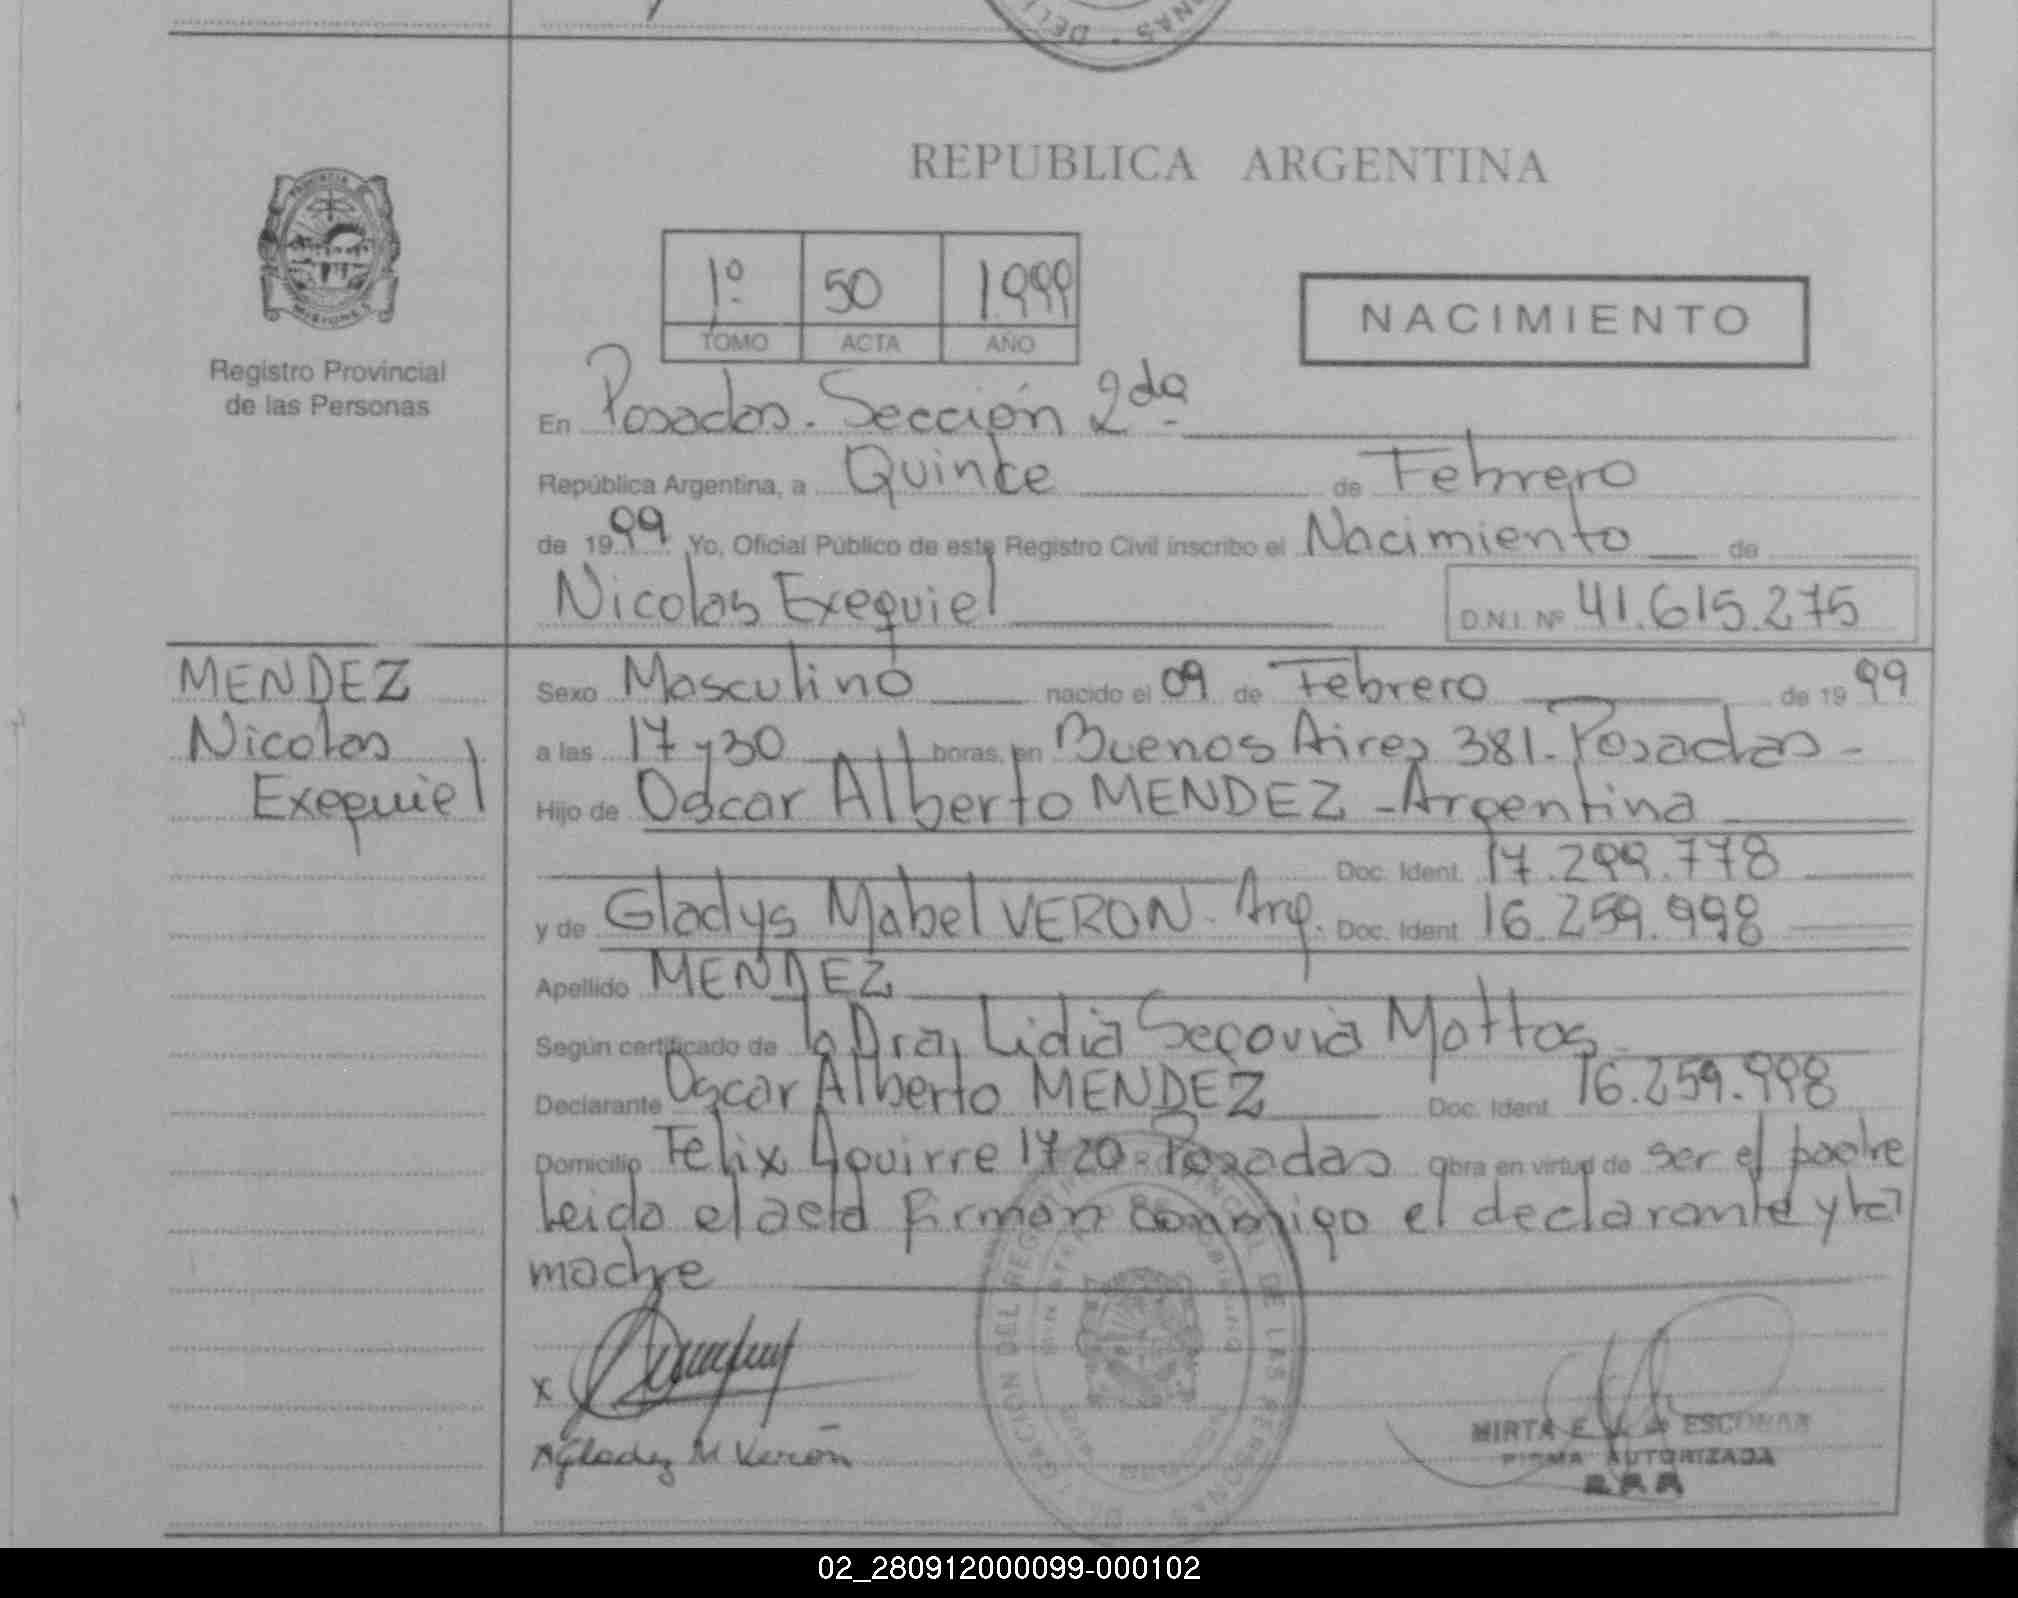 REPUBLICA ARGENTINA
1º 50 1.999
TOMO ACTA AÑO
NACIMIENTO
PROVINCIA
MISIONES
Registro Provincial
de las Personas
En Posadas. Sección 2da
República Argentina, a Quince de Febrero
de 1999 Yo, Oficial Público de este Registro Civil inscribo el Nacimiento de
Nicolas Exequiel D.N.I. Nº 41.615.275
MENDEZ
Nicolas
Exequiel
Sexo Masculino nacido el 09 de Febrero de 1999
a las 17 y 30 horas, en Buenos Aires 381. Posadas -
Hijo de Oscar Alberto MENDEZ - Argentina
Doc. Ident. 17.299.778
y de Gladys Mabel VERON. Arg. Doc. Ident 16.259.998
Apellido MENDEZ
Según certificado de la Dra, Lidia Segovia Mattos
Declarante Oscar Alberto MENDEZ Doc. Ident. 16.259.998
Domicilio Felix Aguirre 1720. Posadas Obra en virtud de ser el padre
Leida el acta firman conmigo el declarante y la
madre
x
x Gladez M Verón
MIRTA E. ESCOBAR
FIRMA AUTORIZADA
02_280912000099-000102